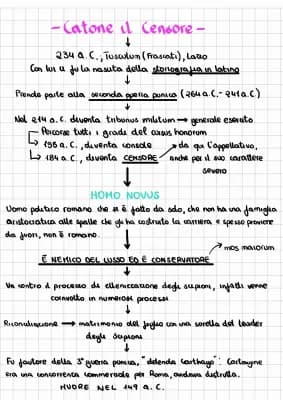 - Catone il Censore -
234 a.C., Tusculum (Frascati), Lazio
Con lui si fa la nascita della storiografia in latino
Prende parte alla seconda guerra punica (264 a.C. - 241 a.C.)
Nel 214 a.C. diventa tribunus militum → generale esercito
Percorse tutti i gradi del cursus honorum
195 a.C., diventa console
da qui l'appellativo,
184 a.C., diventa CENSORE
anche per il suo carattere
severo
HOMO NOVUS
Uomo politico romano che si è fatto da solo, che non ha una famiglia
aristocratica alle spalle che gli ha costruito la carriera e spesso proviene
da fuori, non è romano.
mos maiorum
È NEMICO DEL LUSSO ED È CONSERVATORE
Va contro il processo di ellenizzazione degli scipioni, infatti venne
coinvolto in numerosi processi
Riconciliazione → matrimonio del figlio con una sorella del leader
degli Scipioni
Fu fautore della 3° guerra punica, "delenda Carthago": Cartagine
era una concorrenza commerciale per Roma, andava distrutta.
MUORE NEL 149 a.C.